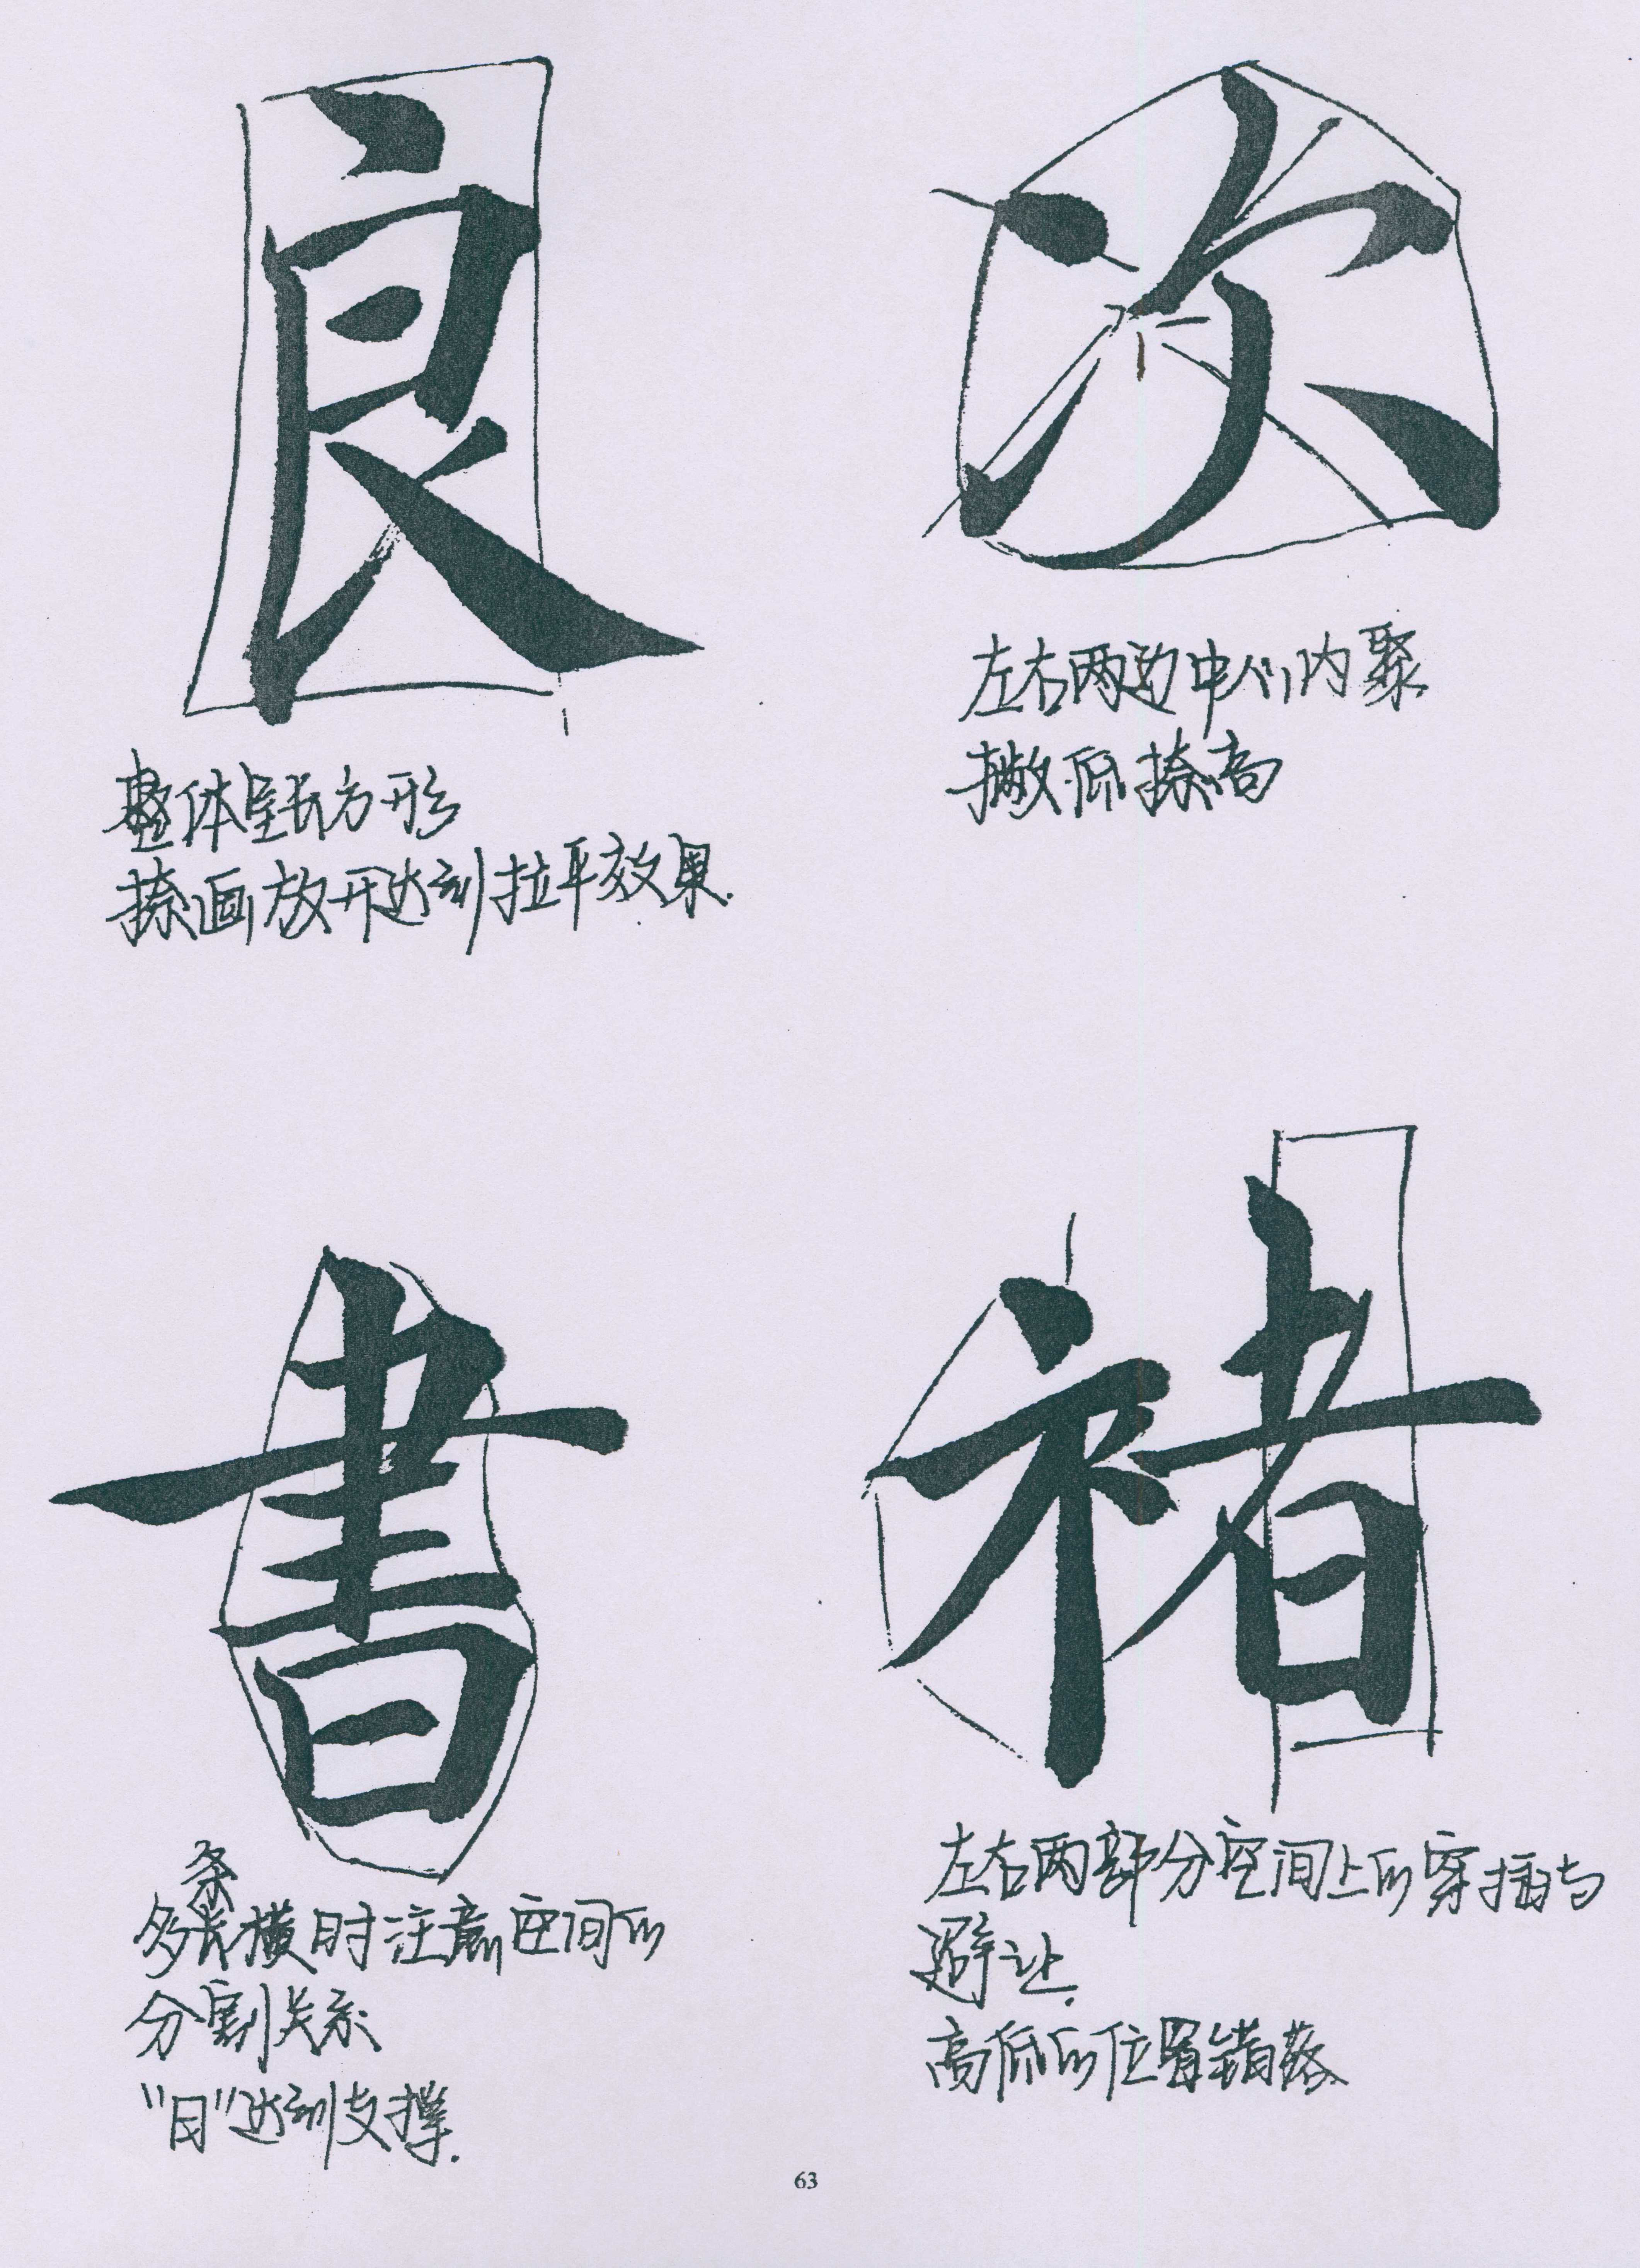 良
整体呈长方形
捺画放开达到拉平效果.
次
左右两边中心内聚
撇低捺高
書
多条横时注意空间的
分割关系
“日”达到支撑.
褚
左右两部分空间上的穿插与
避让.
高低的位置错落
63